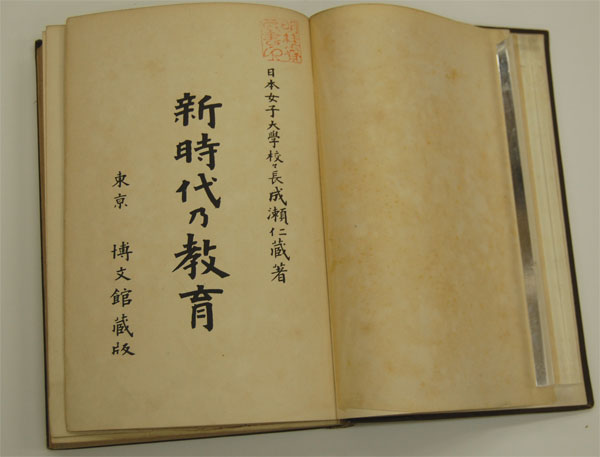 日本女子大學校々長成瀬仁藏著
新時代乃教育
東京 博文館藏版